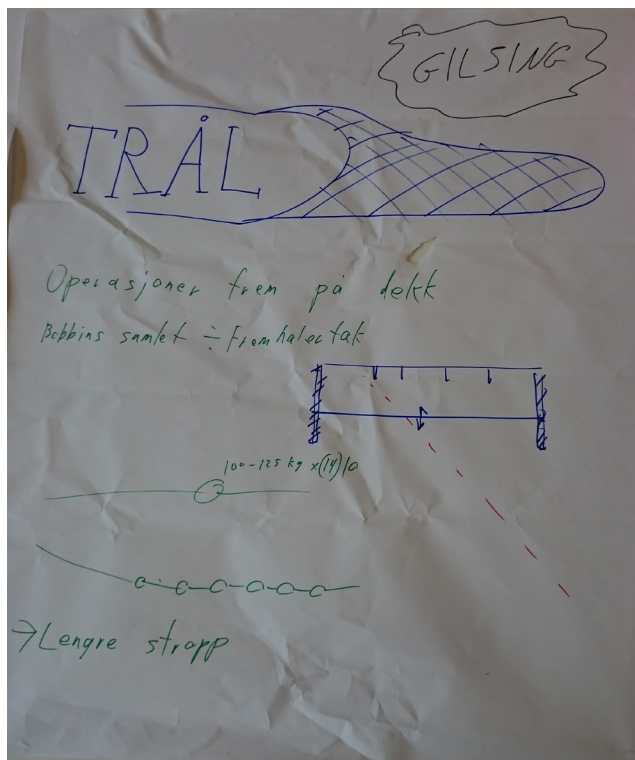 GILSING
TRÅL
Operasjoner frem på dekk
Bobbins samlet ÷ Fremhalertak
100-125 kg x(14)10
→Lengre stropp